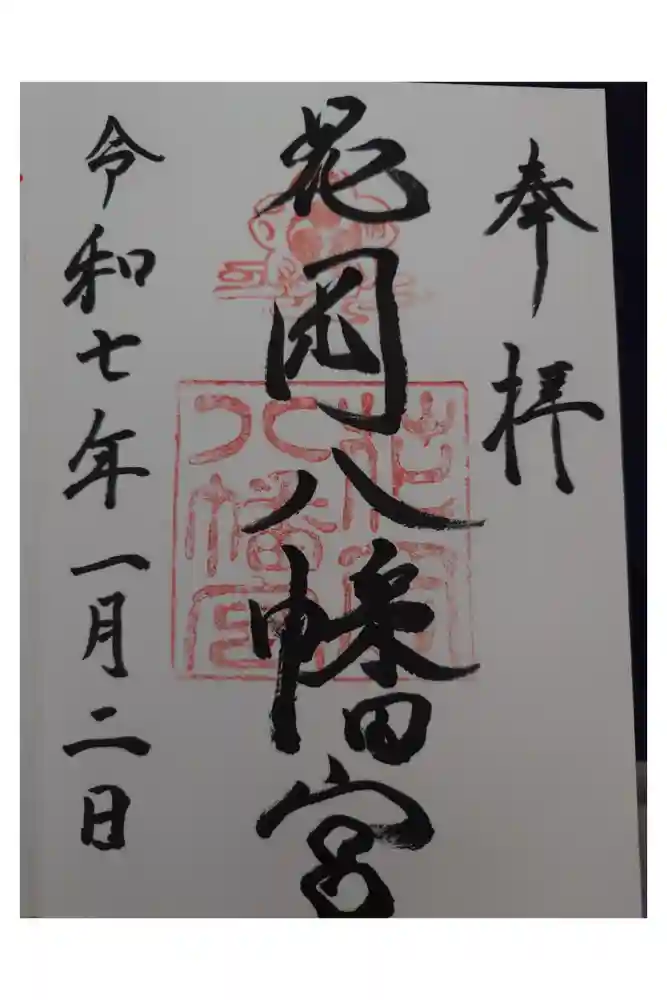 奉拝
花岡八幡宮
花岡
八幡宮
令和七年一月二日